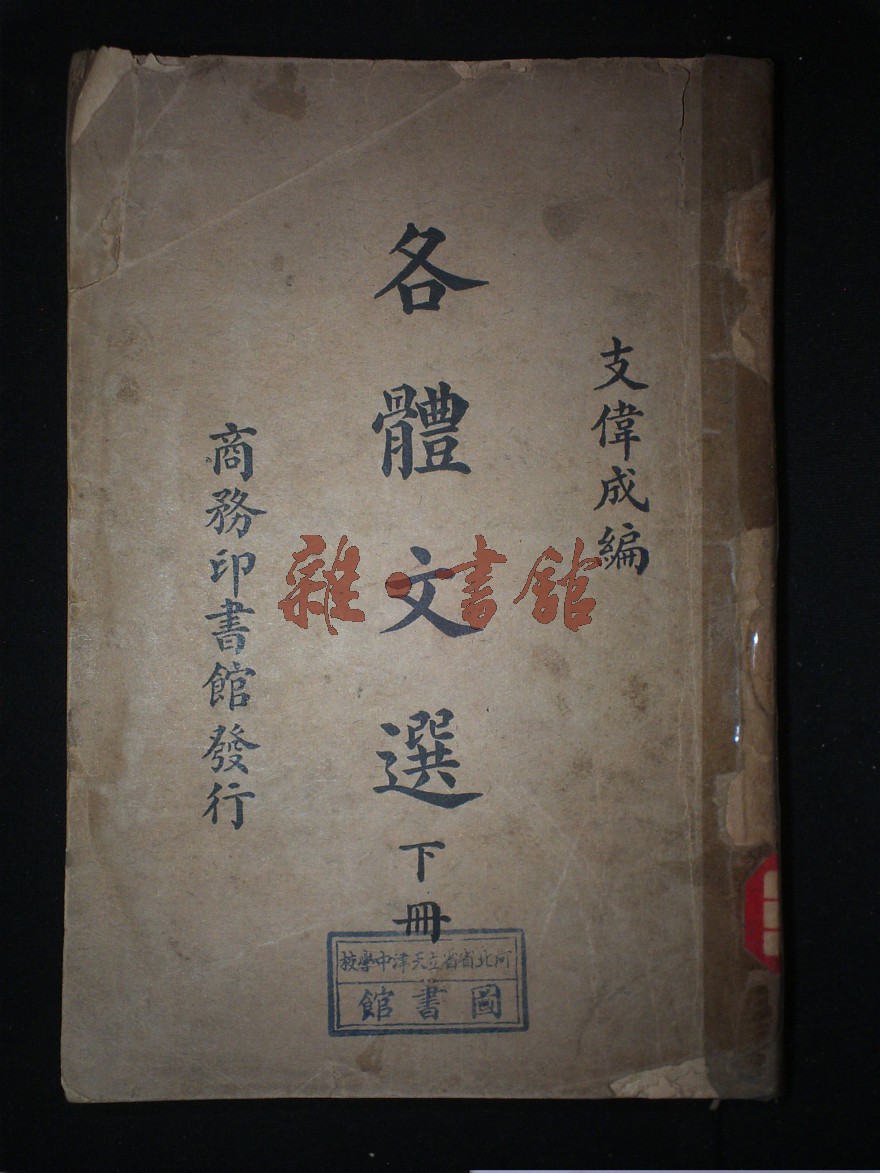 支偉成編
各體文選下冊
商務印書館發行
雜·書館
河北省省立天津中學校
圖書館